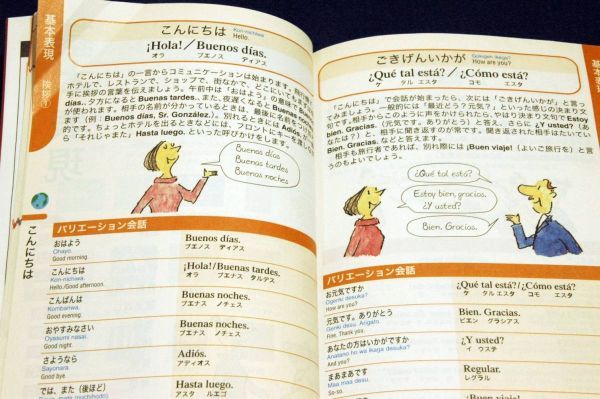 基本表現
挨拶①
こんにちは
Kon-nichiwa
Hello.
¡Hola!／Buenos días.
オラ ブエノス ディアス
「こんにちは」の一言からコミュニケーションは始まります。
ホテルで、レストランで、ショップで、街なかで、どこにいて
手に挨拶の言葉を伝えましょう。午前中は「おはよう」の意味で
días.、夕方になるとBuenas tardes.、また、夜遅くなるとBuenas noches.
が使われます。相手の名前が分かっているときは、最後に名前を
ます（例：Buenos días, Sr. González.）。別れるときにはAdiós.が
的です。ちょっとホテルを出るときなどには、フロントにキーを渡し
ら「それじゃまた」Hasta luego.といった呼びかけをします。
Buenos días
Buenas tardes
Buenas noches
こんにちは
バリエーション会話
おはよう
Ohayo.
Good morning.
Buenos días.
ブエノス ディアス
こんにちは
Kon-nichiwa.
Hello./Good afternoon.
¡Hola!/Buenas tardes.
オラ ブエナス タルデス
こんばんは
Kombanwa.
Good evening.
Buenas noches.
ブエナス ノチェス
おやすみなさい
Oyasumi nasai.
Good night.
Buenas noches.
ブエナス ノチェス
さようなら
Sayonara.
Good bye.
Adiós.
アディオス
では、また（後ほど）
Hasta luego.
アスタ ルエゴ
基本表現
ごきげんいかが
Gokigen ikaga?
How are you?
¿Qué tal está?／¿Cómo está?
ケ タル エスタ コモ エスタ
「こんにちは」で会話が始まったら、次には「ごきげんいかが」と言っ
てみましょう。一般的には「最近どう？元気？」といった感じの決まり文
句です。相手からこのように声をかけられたら、やはり決まり文句でEstoy
bien. Gracias.（元気です。ありがとう）と答え、さらに¿Y usted?（あ
なたは？）と、相手に聞き返すのが常です。聞き返された相手はたいてい
Bien. Gracias.などと答えます。
相手も旅行者であれば、別れ際には¡Buen viaje!（よいご旅行を）と言
うのもよいでしょう。
¿Qué tal está?
Estoy bien, gracias.
¿Y usted?
Bien. Gracias.
バリエーション会話
お元気ですか
Ogenki desuka?
How are you?
¿Qué tal está?/¿Cómo está?
ケ タル エスタ コモ エスタ
元気です。ありがとう
Genki desu. Arigato.
Fine. Thank you.
Bien. Gracias.
ビエン グラシアス
あなたの方はいかがですか
Anatano ho wa ikaga desuka?
And you?
¿Y usted?
イ ウステ
まあまあです
Maa maa desu.
So-so.
Regular.
レグラル
¡Buen viaje!